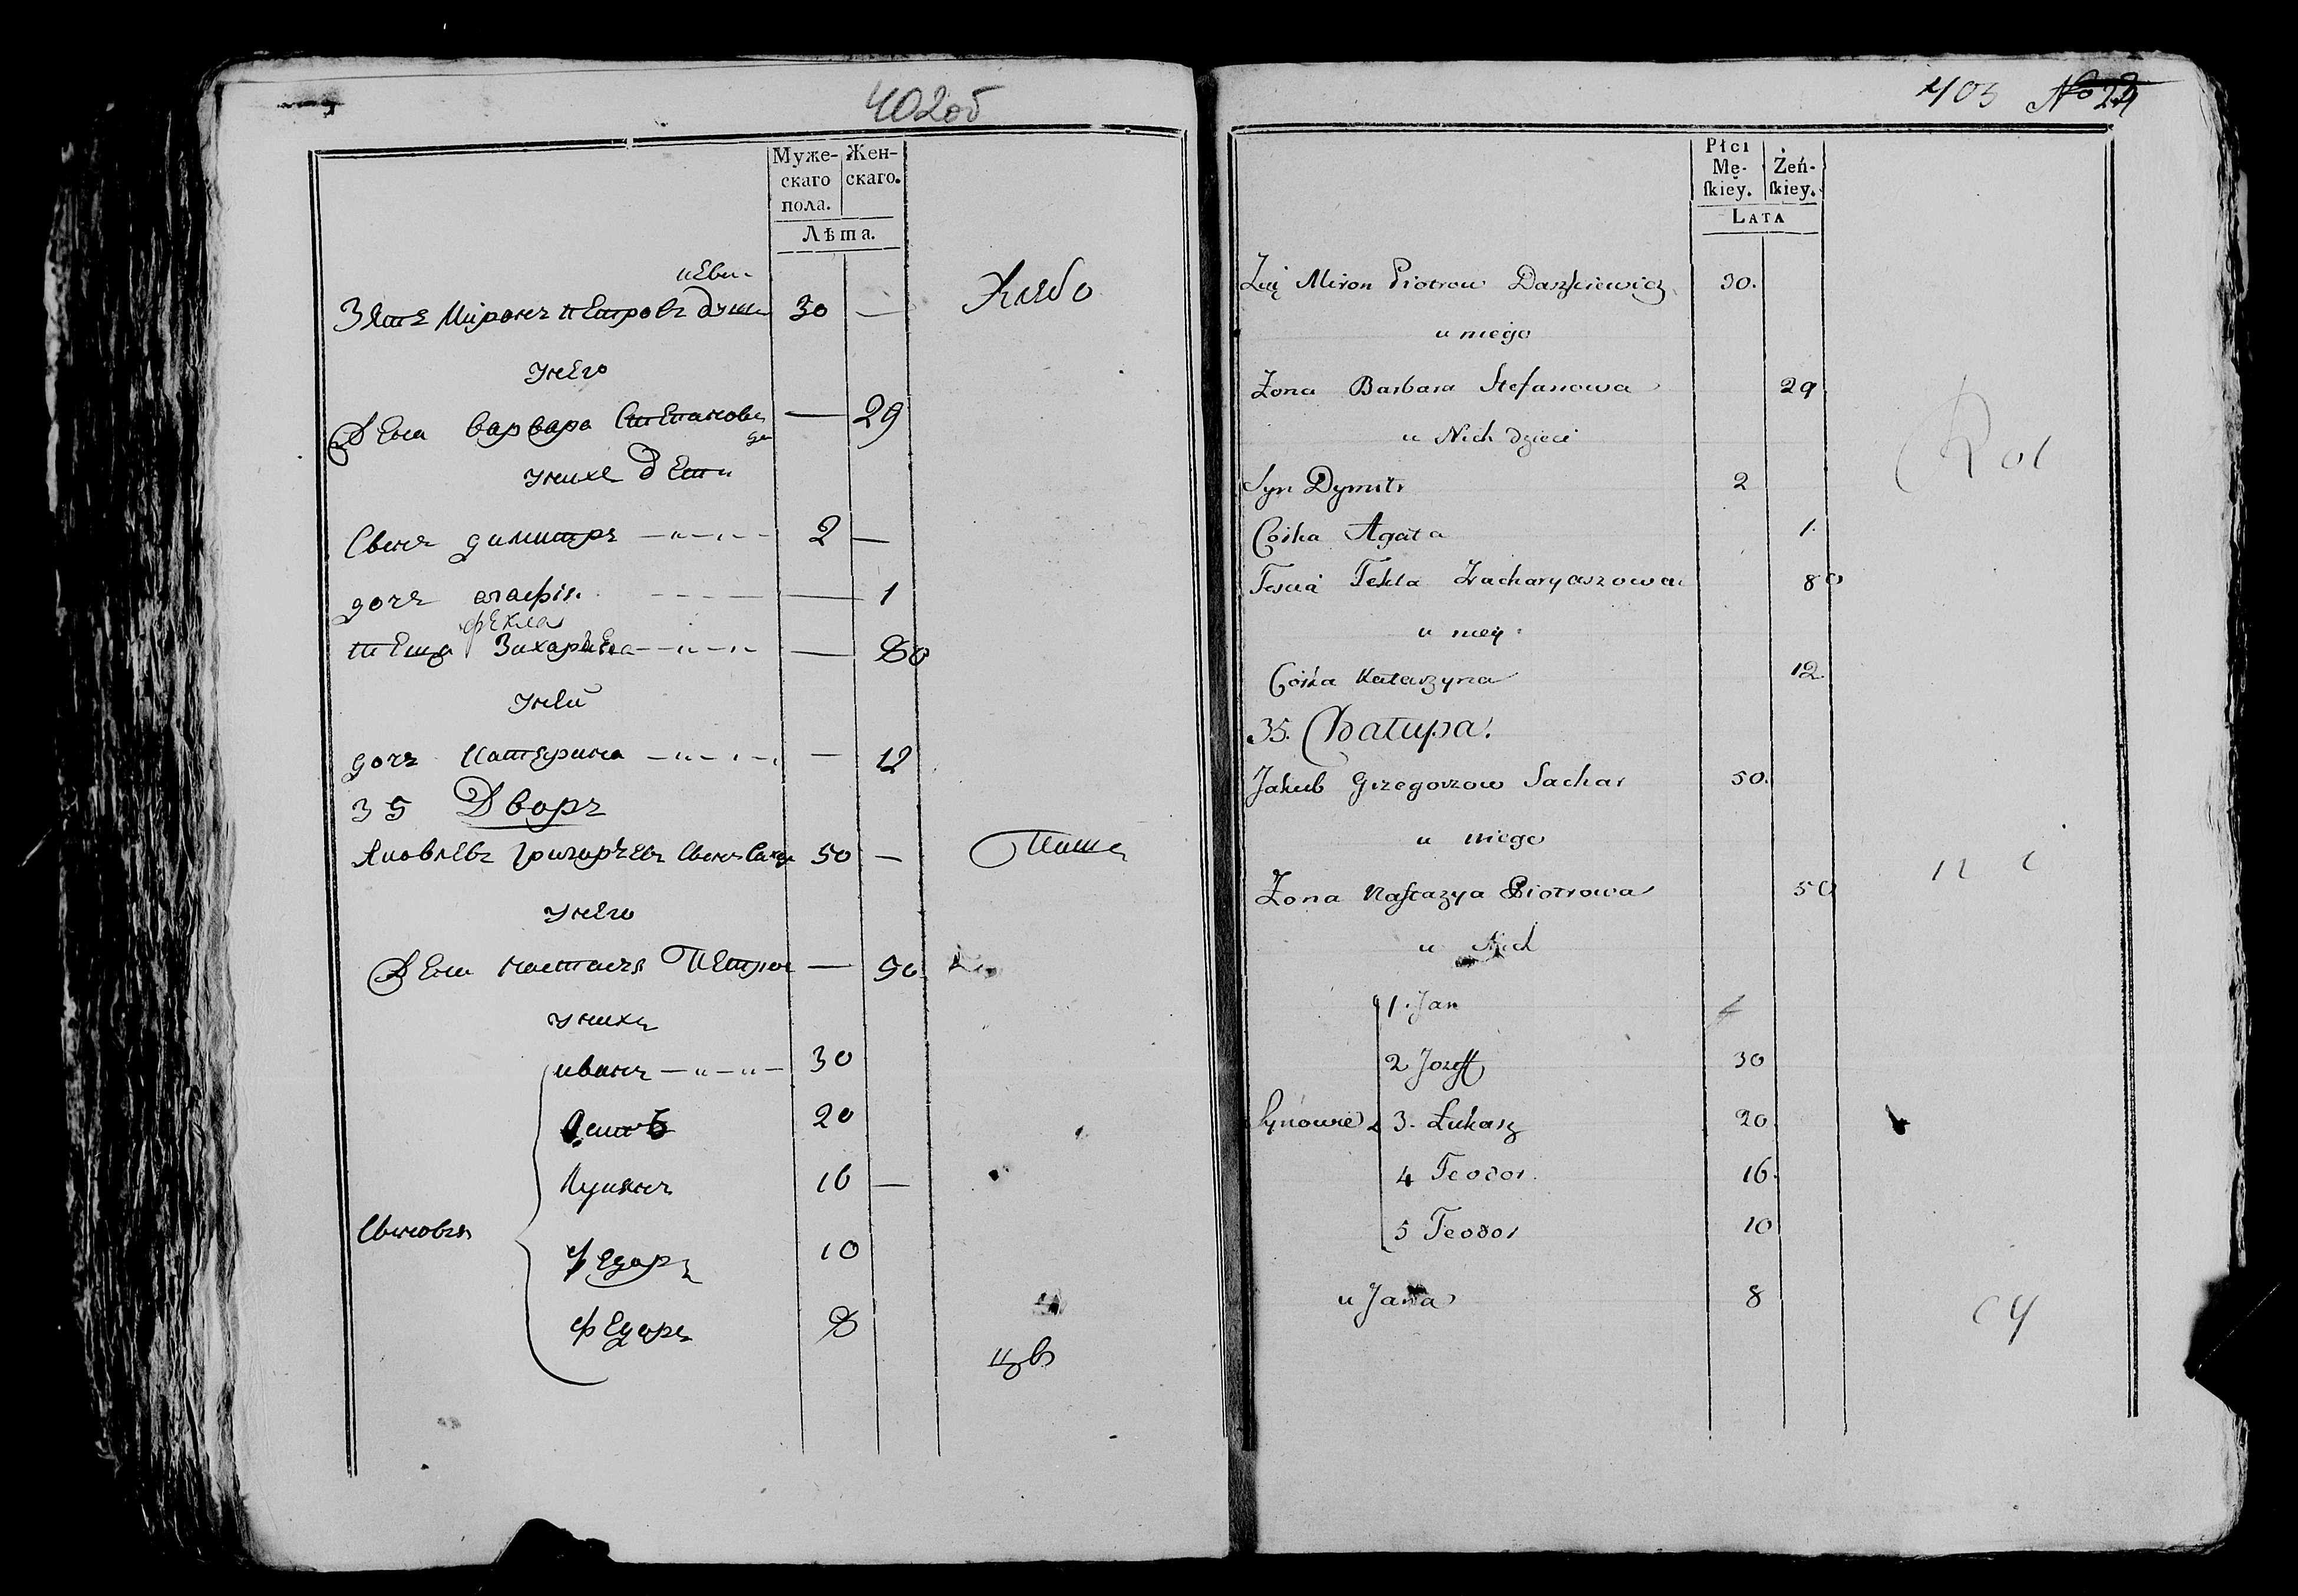 402об
Муже- Жен-
скаго скаго.
пола.
Лѣта.
Зять Миронъ Петровъ 30 —
Хлебо
унего
Жена варвара Степанова — 29
унихъ дети
Сынъ димитръ 2 —
дочь агафія — 1
фекла
теща Захарьева — 80
уней
дочь Катерина — 12
35 Дворъ
Яковлевъ григорьевъ Сынъ 50 —
унего
Жена настасья Петров — 50
унихъ
иванъ 30
20
Лукянъ 16 —
Сыновья
федоръ 10
федоръ 8
403 No 24
Płci
Mę- Żeń-
skiey. skiey.
Lata
Zięć Miron Piotrow Daszkiewicz 30.
u niego
Żona Barbara Stefanowa 29
u Nich dzieci
Syn Dymitr 2
Córka Agata 1
Tescia Tekla Zacharyaszowa 80
u niey
Córka Katarzyna 12
35. Chałupa.
Jakub Grzegorzow Sachar 50.
u niego
Żona Nastazya Piotrowa 50
u Nich
1. Jan
2 Jozeff 30
Synowie 3. Łukasz 20
4 Teodor. 16.
5 Teodor 10
u Jana 8